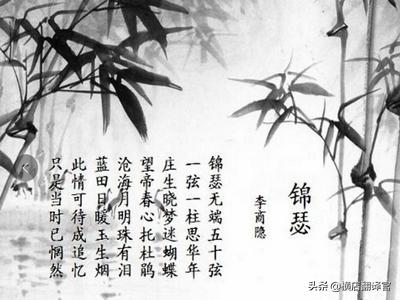 锦瑟
李商隐
锦瑟无端五十弦
一弦一柱思华年
庄生晓梦迷蝴蝶
望帝春心托杜鹃
沧海月明珠有泪
蓝田日暖玉生烟
此情可待成追忆
只是当时已惘然
头条 @横店翻译官